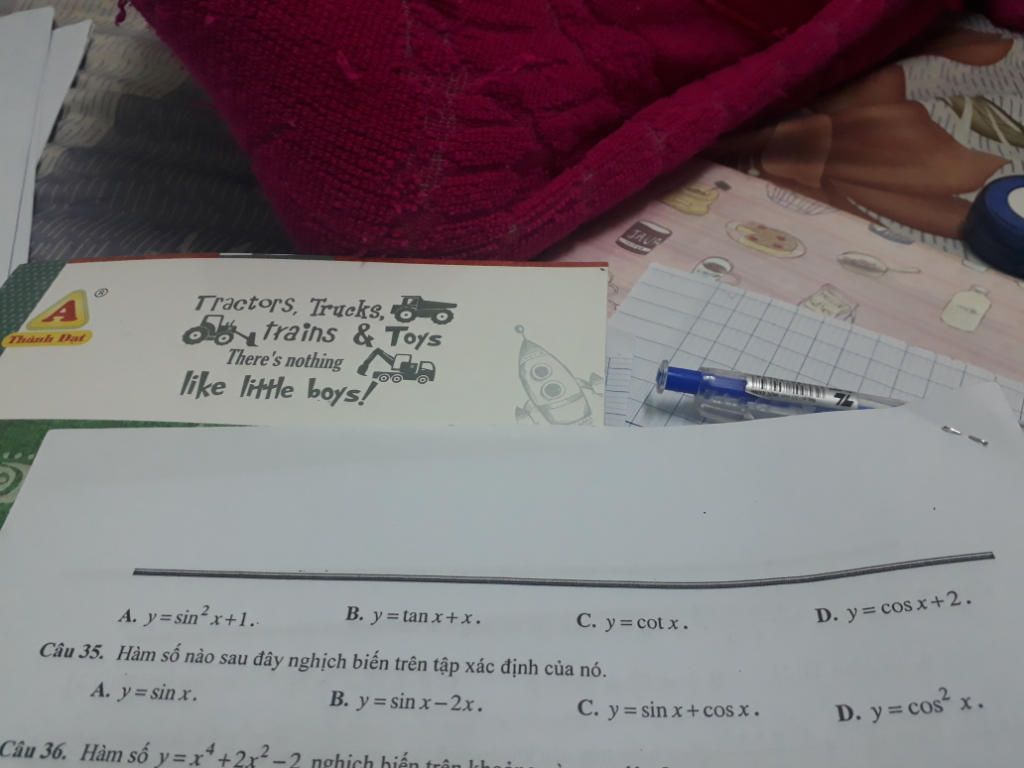 JAVA
A ®
Thành Đạt
Tractors, Trucks,
trains & Toys
There's nothing
like little boys!
A. y = sin² x + 1.
B. y = tan x + x.
C. y = cot x.
D. y = cos x + 2.
Câu 35. Hàm số nào sau đây nghịch biến trên tập xác định của nó.
A. y = sin x.
B. y = sin x − 2x.
C. y = sin x + cos x.
D. y = cos² x.
Câu 36. Hàm số y = x⁴ + 2x² − 2 nghịch biến trên